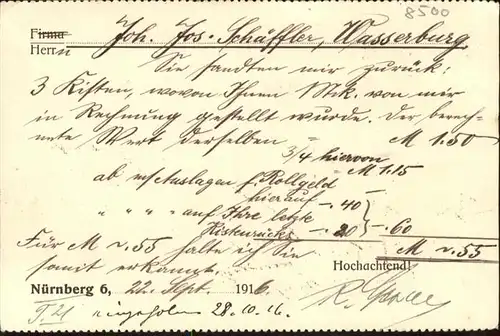 8500
Firma
Herrn Joh. Jos. Schäffler, Wasserburg
Sie sandten mir zurück:
3 Kisten, wovon Ihnen 1 Stk. von mir
in Rechnung gestellt wurde. Der berech-
nete Wert derselben = M 1.50
3/4 hiervon = M 1.15
ab m/Auslagen f. Rollgeld
hierauf -.40
" " " auf Ihre letzte
Kistenrücks. -.20 -.60
M -.55
Für M -.55 halte ich Sie
somit erkannt.
Hochachtend
Nürnberg 6, 22. Sept. 1916
eingeholen 28.10.16.